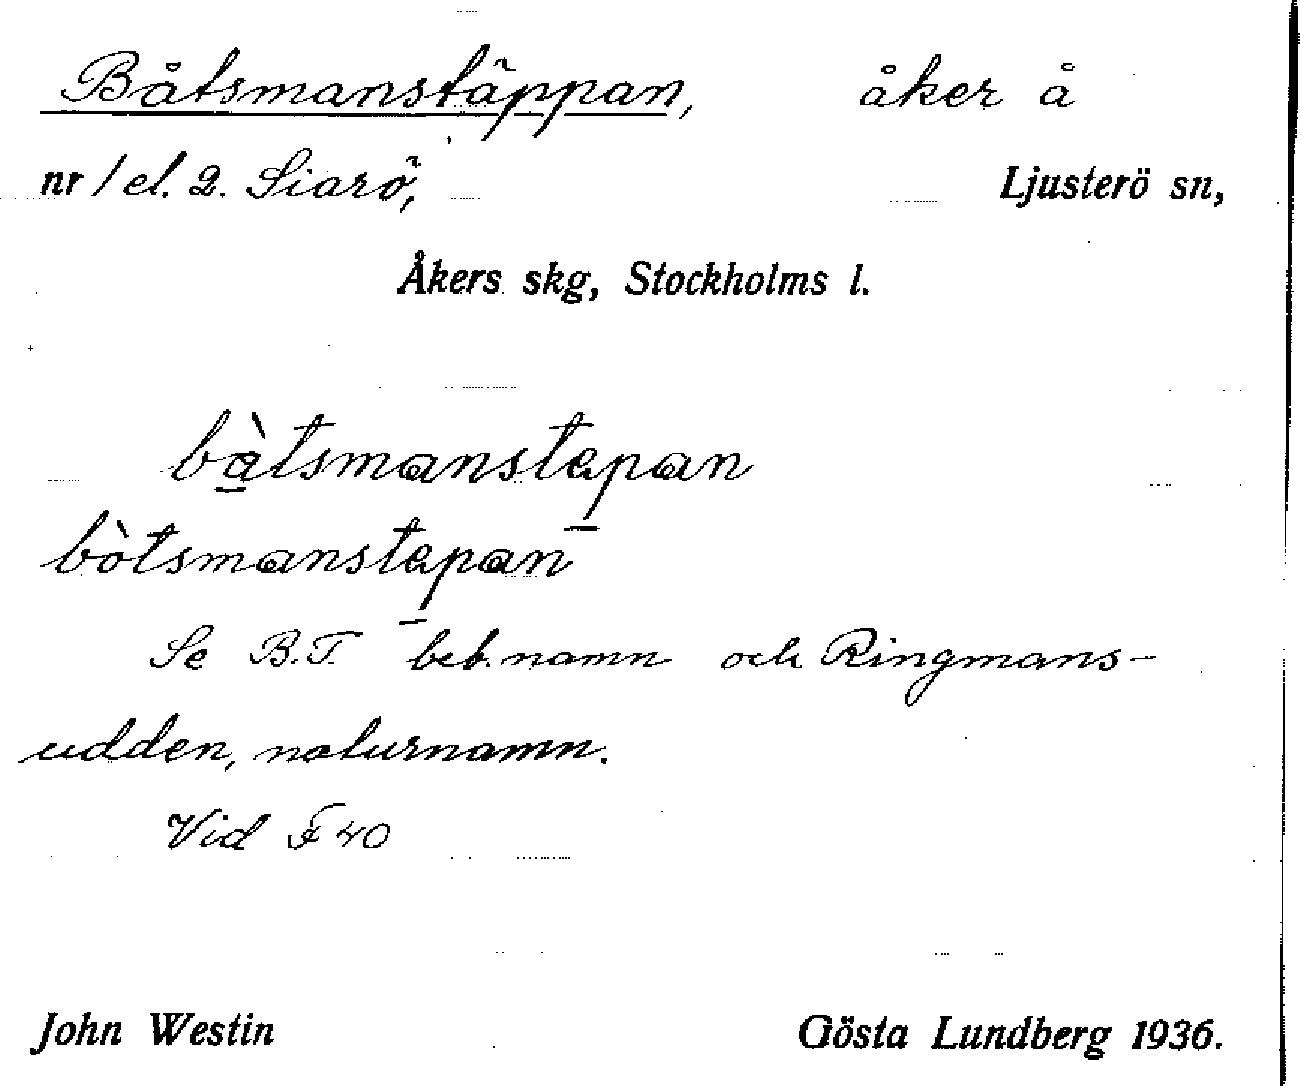 Båtsmanstäppan, åker å
nr 1 el. 2. Siarö, Ljusterö sn,
Åkers skg, Stockholms l.
bàtsmanstepan
bòtsmanstepan
Se B.T. beb. namn och Ringmans-
udden, naturnamn.
Vid F 40
John Westin Gösta Lundberg 1936.